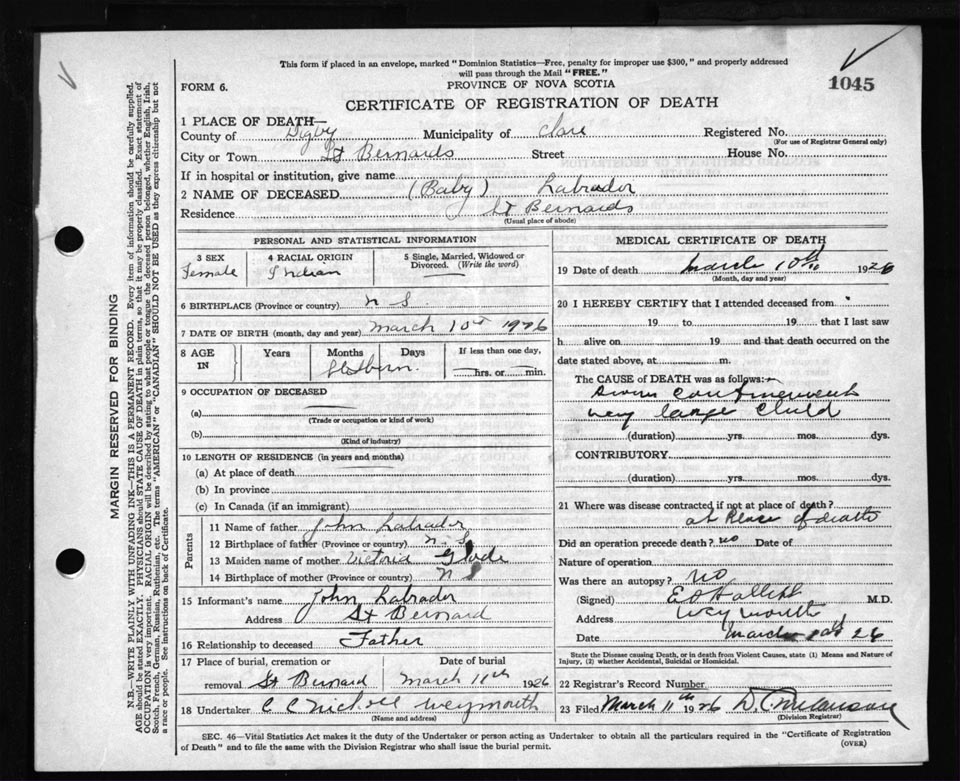 This form if placed in an envelope, marked "Dominion Statistics—Free, penalty for improper use $300," and properly addressed
will pass through the Mail "FREE."
1045
FORM 6.
PROVINCE OF NOVA SCOTIA
CERTIFICATE OF REGISTRATION OF DEATH
1 PLACE OF DEATH—
County of Digby Municipality of Clare Registered No.
(For use of Registrar General only)
City or Town St Bernards Street House No.
If in hospital or institution, give name
2 NAME OF DECEASED (Baby) Labrador
Residence St Bernards
(Usual place of abode)
PERSONAL AND STATISTICAL INFORMATION
3 SEX 4 RACIAL ORIGIN 5 Single, Married, Widowed or
Divorced. (Write the word)
Female Indian
6 BIRTHPLACE (Province or country) N S
7 DATE OF BIRTH (month, day and year) March 10 1926
8 AGE IN Years Months Days If less than one day,
Stillborn hrs. or min.
9 OCCUPATION OF DECEASED
(a)
(Trade or occupation or kind of work)
(b)
(Kind of industry)
10 LENGTH OF RESIDENCE (in years and months)
(a) At place of death
(b) In province
(c) In Canada (if an immigrant)
Parents
11 Name of father John Labrador
12 Birthplace of father (Province or country) N. S
13 Maiden name of mother Victoria Glode
14 Birthplace of mother (Province or country) N S
15 Informant's name John Labrador
Address St Bernard
16 Relationship to deceased Father
17 Place of burial, cremation or Date of burial
removal St Bernard March 11th 1926
18 Undertaker C C Nichols Weymouth
(Name and address)
MEDICAL CERTIFICATE OF DEATH
19 Date of death March 10th 1926
(Month, day and year)
20 I HEREBY CERTIFY that I attended deceased from
19 to 19 that I last saw
h alive on 19 and that death occurred on the
date stated above, at m.
The CAUSE OF DEATH was as follows:—
confinement
very large child
(duration) yrs. mos. dys.
CONTRIBUTORY
(duration) yrs. mos. dys.
21 Where was disease contracted if not at place of death?
at place of death
Did an operation precede death? no Date of
Nature of operation
Was there an autopsy? no
(Signed) M.D.
Address Weymouth
Date March 26
State the Disease causing Death, or in death from Violent Causes, state (1) Means and Nature of
Injury, (2) whether Accidental, Suicidal or Homicidal.
22 Registrar's Record Number
23 Filed March 11th 1926 D. C. Melanson
(Division Registrar)
SEC. 46—Vital Statistics Act makes it the duty of the Undertaker or person acting as Undertaker to obtain all the particulars required in the "Certificate of Registration
of Death" and to file the same with the Division Registrar who shall issue the burial permit.
(OVER)
MARGIN RESERVED FOR BINDING
N.B.—WRITE PLAINLY WITH UNFADING INK—THIS IS A PERMANENT RECORD. Every item of information should be carefully supplied.
AGE should be stated EXACTLY. PHYSICIANS should STATE CAUSE OF DEATH in plain terms, so that it may be properly classified. Exact statement of
OCCUPATION is very important. RACIAL ORIGIN will be described by stating to what people or tongue the deceased person belonged, whether English, Irish,
Scotch, French, German, Russian, Ruthenian, etc. The terms "AMERICAN" or "CANADIAN" SHOULD NOT BE USED as they express citizenship but not
a race or people. See instructions on back of Certificate.